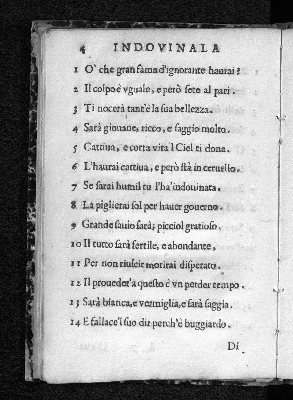 4 INDOVINALA
1 O' che gran fama d'ignorante haurai?
2 Il colpo è vguale, e però sete al pari.
3 Ti nocerà tant'è la sua bellezza.
4 Sarà giouane, ricco, e saggio molto.
5 Cattiua, e corta vita 'l Ciel ti dona.
6 L'haurai cattiua, e però stà in ceruello.
7 Se sarai humil tu l'ha'indouinata.
8 La piglierai sol per hauer gouerno.
9 Grande sauio sarà, picciol gratioso.
10 Il tutto sarà fertile, e abondante,
11 Per non riuscir morirai disperato.
12 Il proueder'a questo è vn perder tempo.
13 Sarà bianca, e vermiglia, e sarà saggia.
14 E fallace'l suo dir perch'è buggiardo.
Di